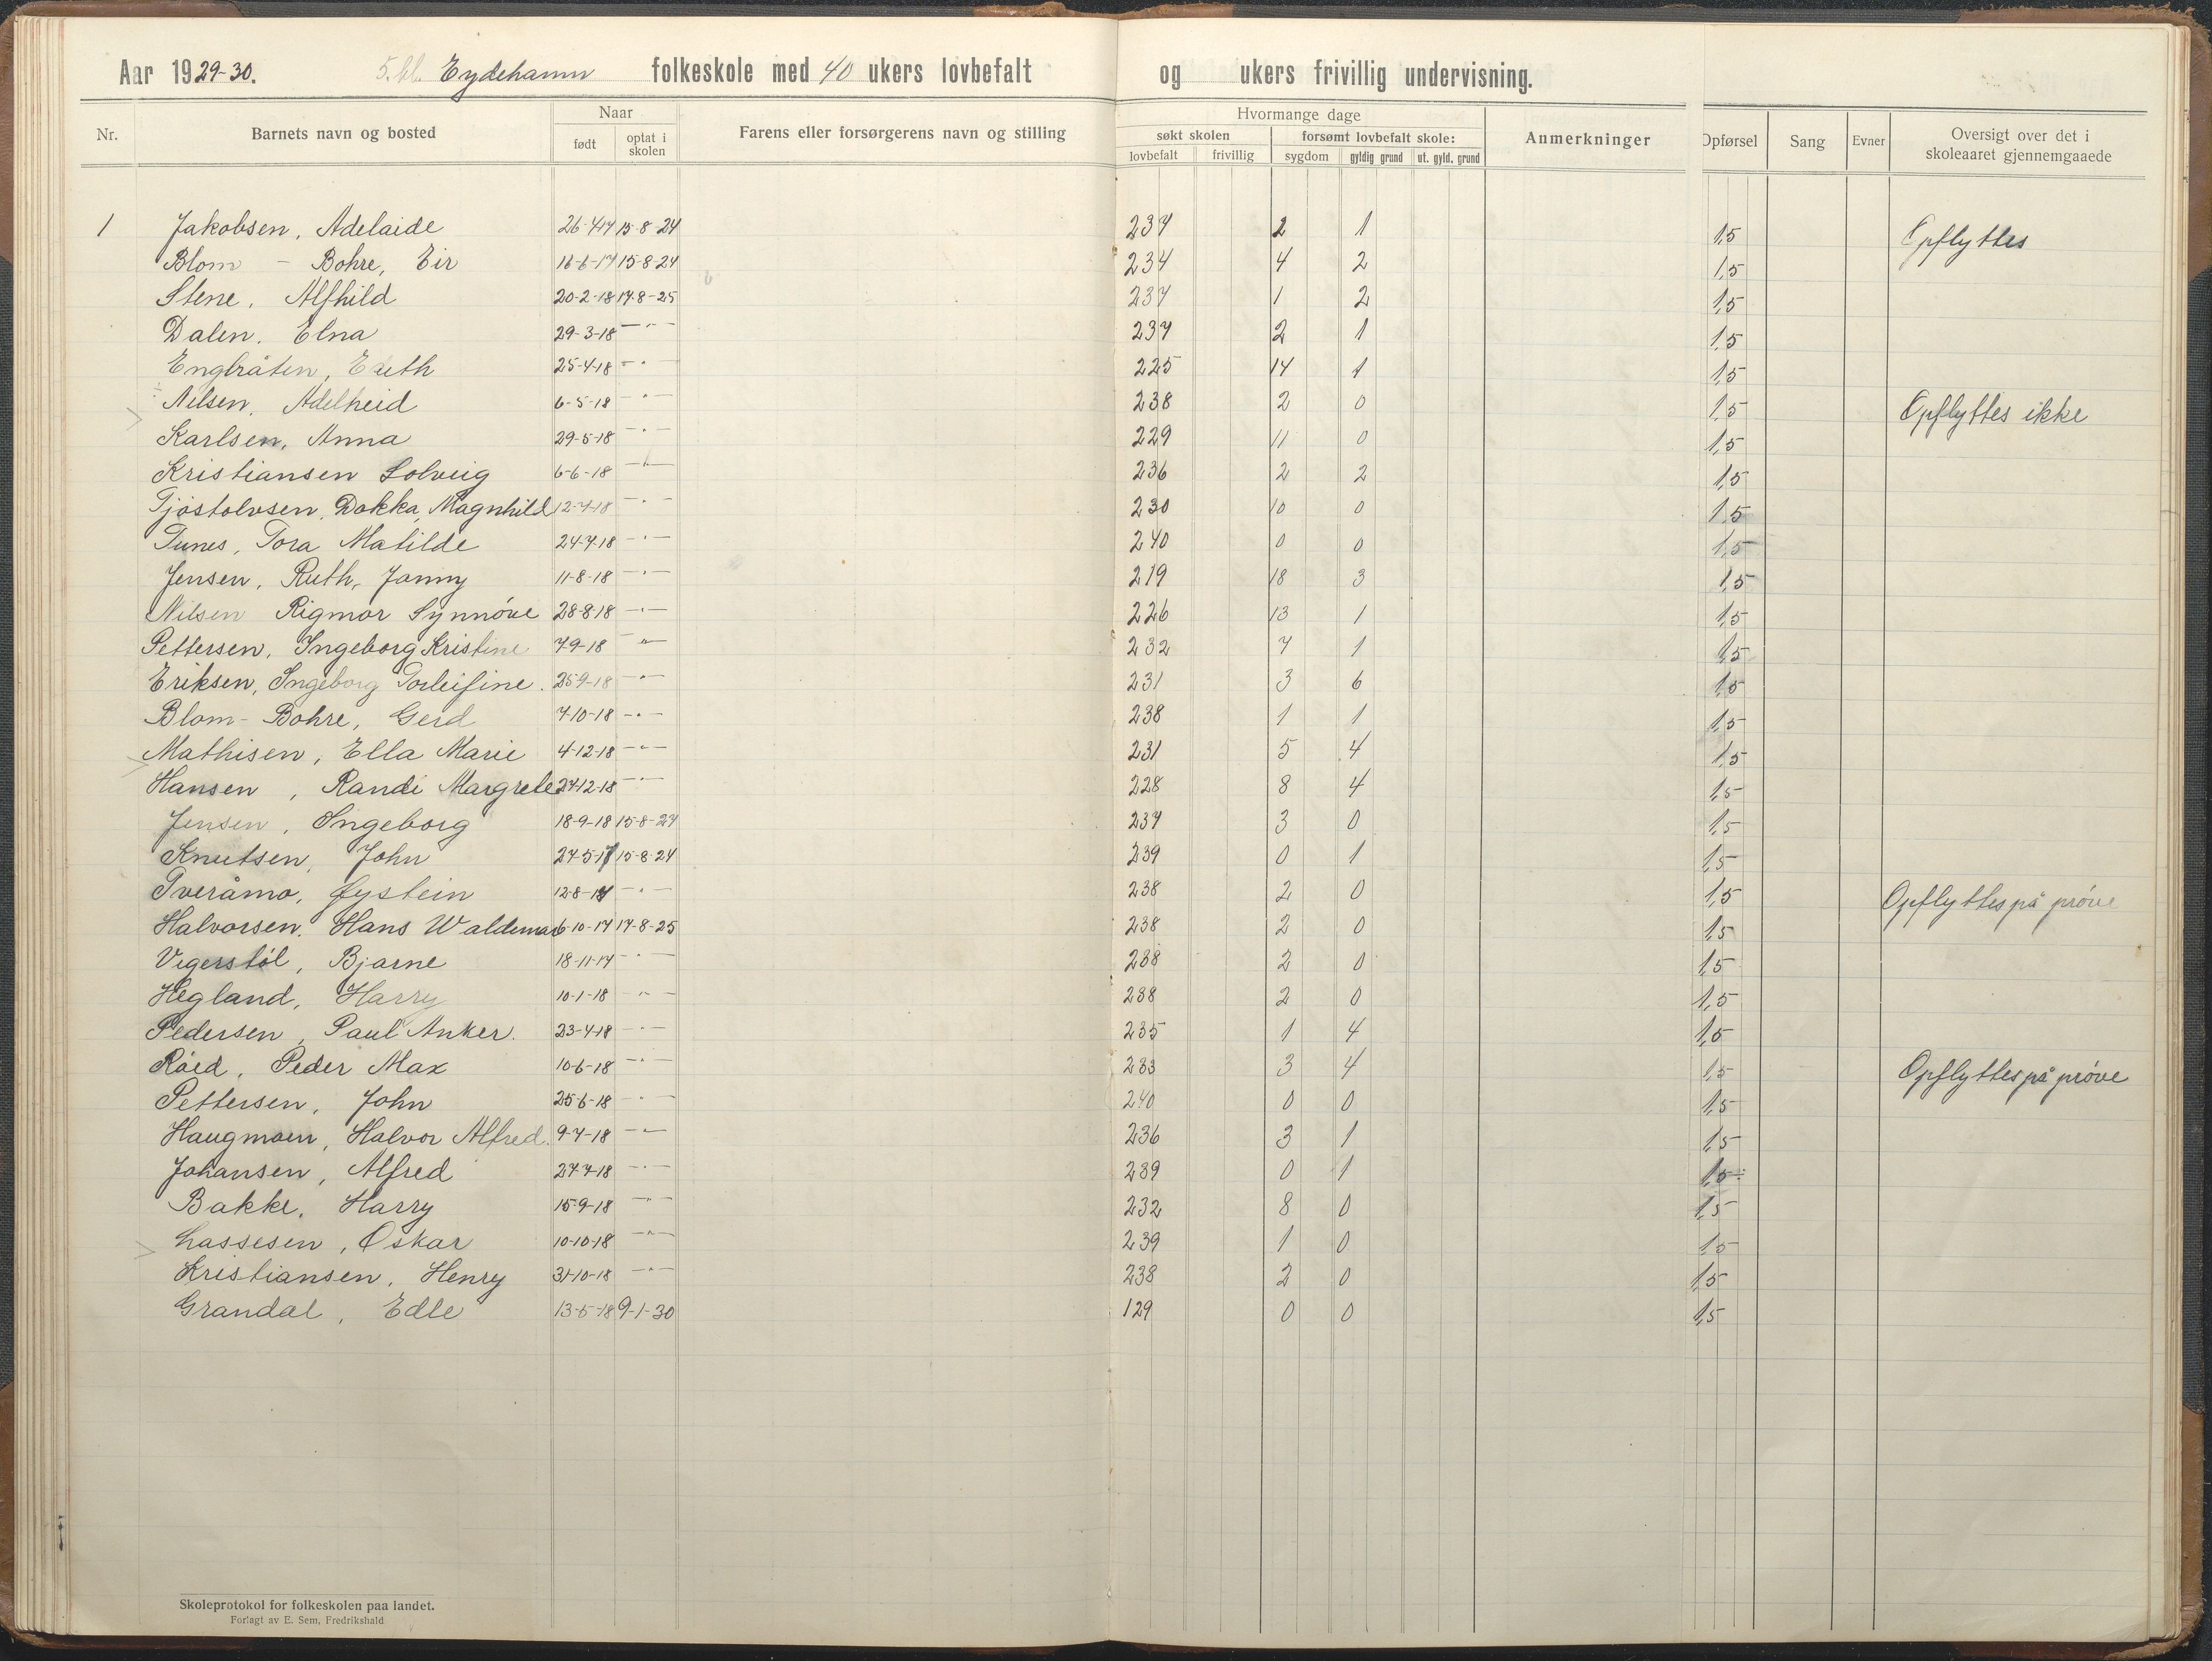 Aar 1929-30. 5. kl. Eydehamn folkeskole med 40 ukers lovbefalt og ukers frivillig undervisning.
Nr. Barnets navn og bosted Naar født optat i skolen Farens eller forsørgerens navn og stilling Hvormange dage søkt skolen lovbefalt frivillig forsømt lovbefalt skole: sygdom gyldig grund ut. gyld. grund Anmerkninger Opførsel Sang Evner Oversigt over det i skoleaaret gjennemgaaede
1 Jakobsen, Adelaide 26-4-17 15-8-24 237 2 1 1,5 Opflyttes
Blom - Bohre, Eir 16-6-17 15-8-24 234 4 2 1,5
Stene, Alfhild 20-2-18 17-8-25 237 1 2 1,5
Dalen, Elna 29-3-18 -"- 237 2 1 1,5
Englråten, Edith 25-4-18 -"- 225 14 1 1,5
Nilsen, Adelheid 6-5-18 -"- 238 2 0 1,5 Opflyttes ikke
Karlsen, Anna 29-5-18 -"- 229 11 0 1,5
Kristiansen Solveig 6-6-18 -"- 236 2 2 1,5
Tjøstolvsen, Dokka, Magnhild 12-7-18 -"- 230 10 0 1,5
Tunes, Tora Matilde 24-7-18 -"- 240 0 0 1,5
Jensen, Ruth, Janny 11-8-18 -"- 219 18 3 1,5
Nilsen Rigmor Synnøve 28-8-18 -"- 226 13 1 1,5
Pettersen, Ingeborg Kristine 7-9-18 -"- 232 7 1 1,5
Eriksen, Ingeborg Torleifine. 25-9-18 -"- 231 3 6 1,5
Blom - Bohre, Gerd 7-10-18 -"- 238 1 1 1,5
Mathisen, Ella Marie 4-12-18 -"- 231 5 4 1,5
Hansen, Randi Margrete 27-12-18 -"- 228 8 4 1,5
Jensen, Ingeborg 18-9-18 15-8-24 237 3 0 1,5
Knutsen, John 27-5-17 15-8-24 239 0 1 1,5
Tveråmo, Øystein 12-8-17 -"- 238 2 0 1,5 Opflyttes på prøve
Halvorsen, Hans Waldemar 6-10-17 17-8-25 238 2 0 1,5
Vegerstøl, Bjarne 18-11-17 -"- 238 2 0 1,5
Hegland, Harry 10-1-18 -"- 238 2 0 1,5
Pedersen, Paul Anker. 23-4-18 -"- 235 1 4 1,5
Røed, Peder Max 10-6-18 -"- 233 3 4 1,5 Opflyttes på prøve
Pettersen, John 25-6-18 -"- 240 0 0 1,5
Haugmoen, Halvor Alfred. 9-7-18 -"- 236 3 1 1,5
Johansen, Alfred 27-7-18 -"- 239 0 1 1,5
Bakke, Harry 15-9-18 -"- 232 8 0 1,5
Lassesen, Oskar 10-10-18 -"- 239 1 0 1,5
Kristiansen, Henry 31-10-18 -"- 238 2 0 1,5
Grandal, Edle 13-5-18 9-1-30 129 0 0 1,5
Skoleprotokol for folkeskolen paa landet.
Forlagt av E. Sem, Fredrikshald